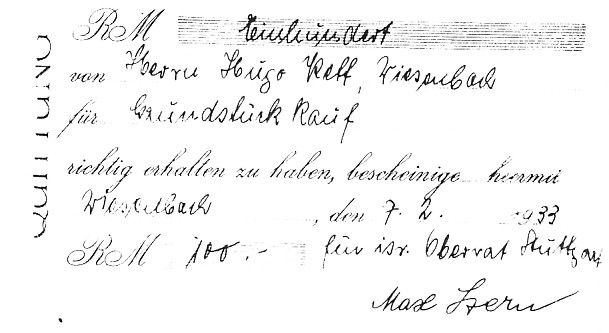 QUITTUNG
RM Einhundert
von Herrn Hugo Keff, Wiesenbach
für Grundstück Kauf
richtig erhalten zu haben, bescheinige hiermit
Wiesenbach, den 7. 2. 1933
RM 100.- für isr. Oberrat Stuttgart
Max Stern